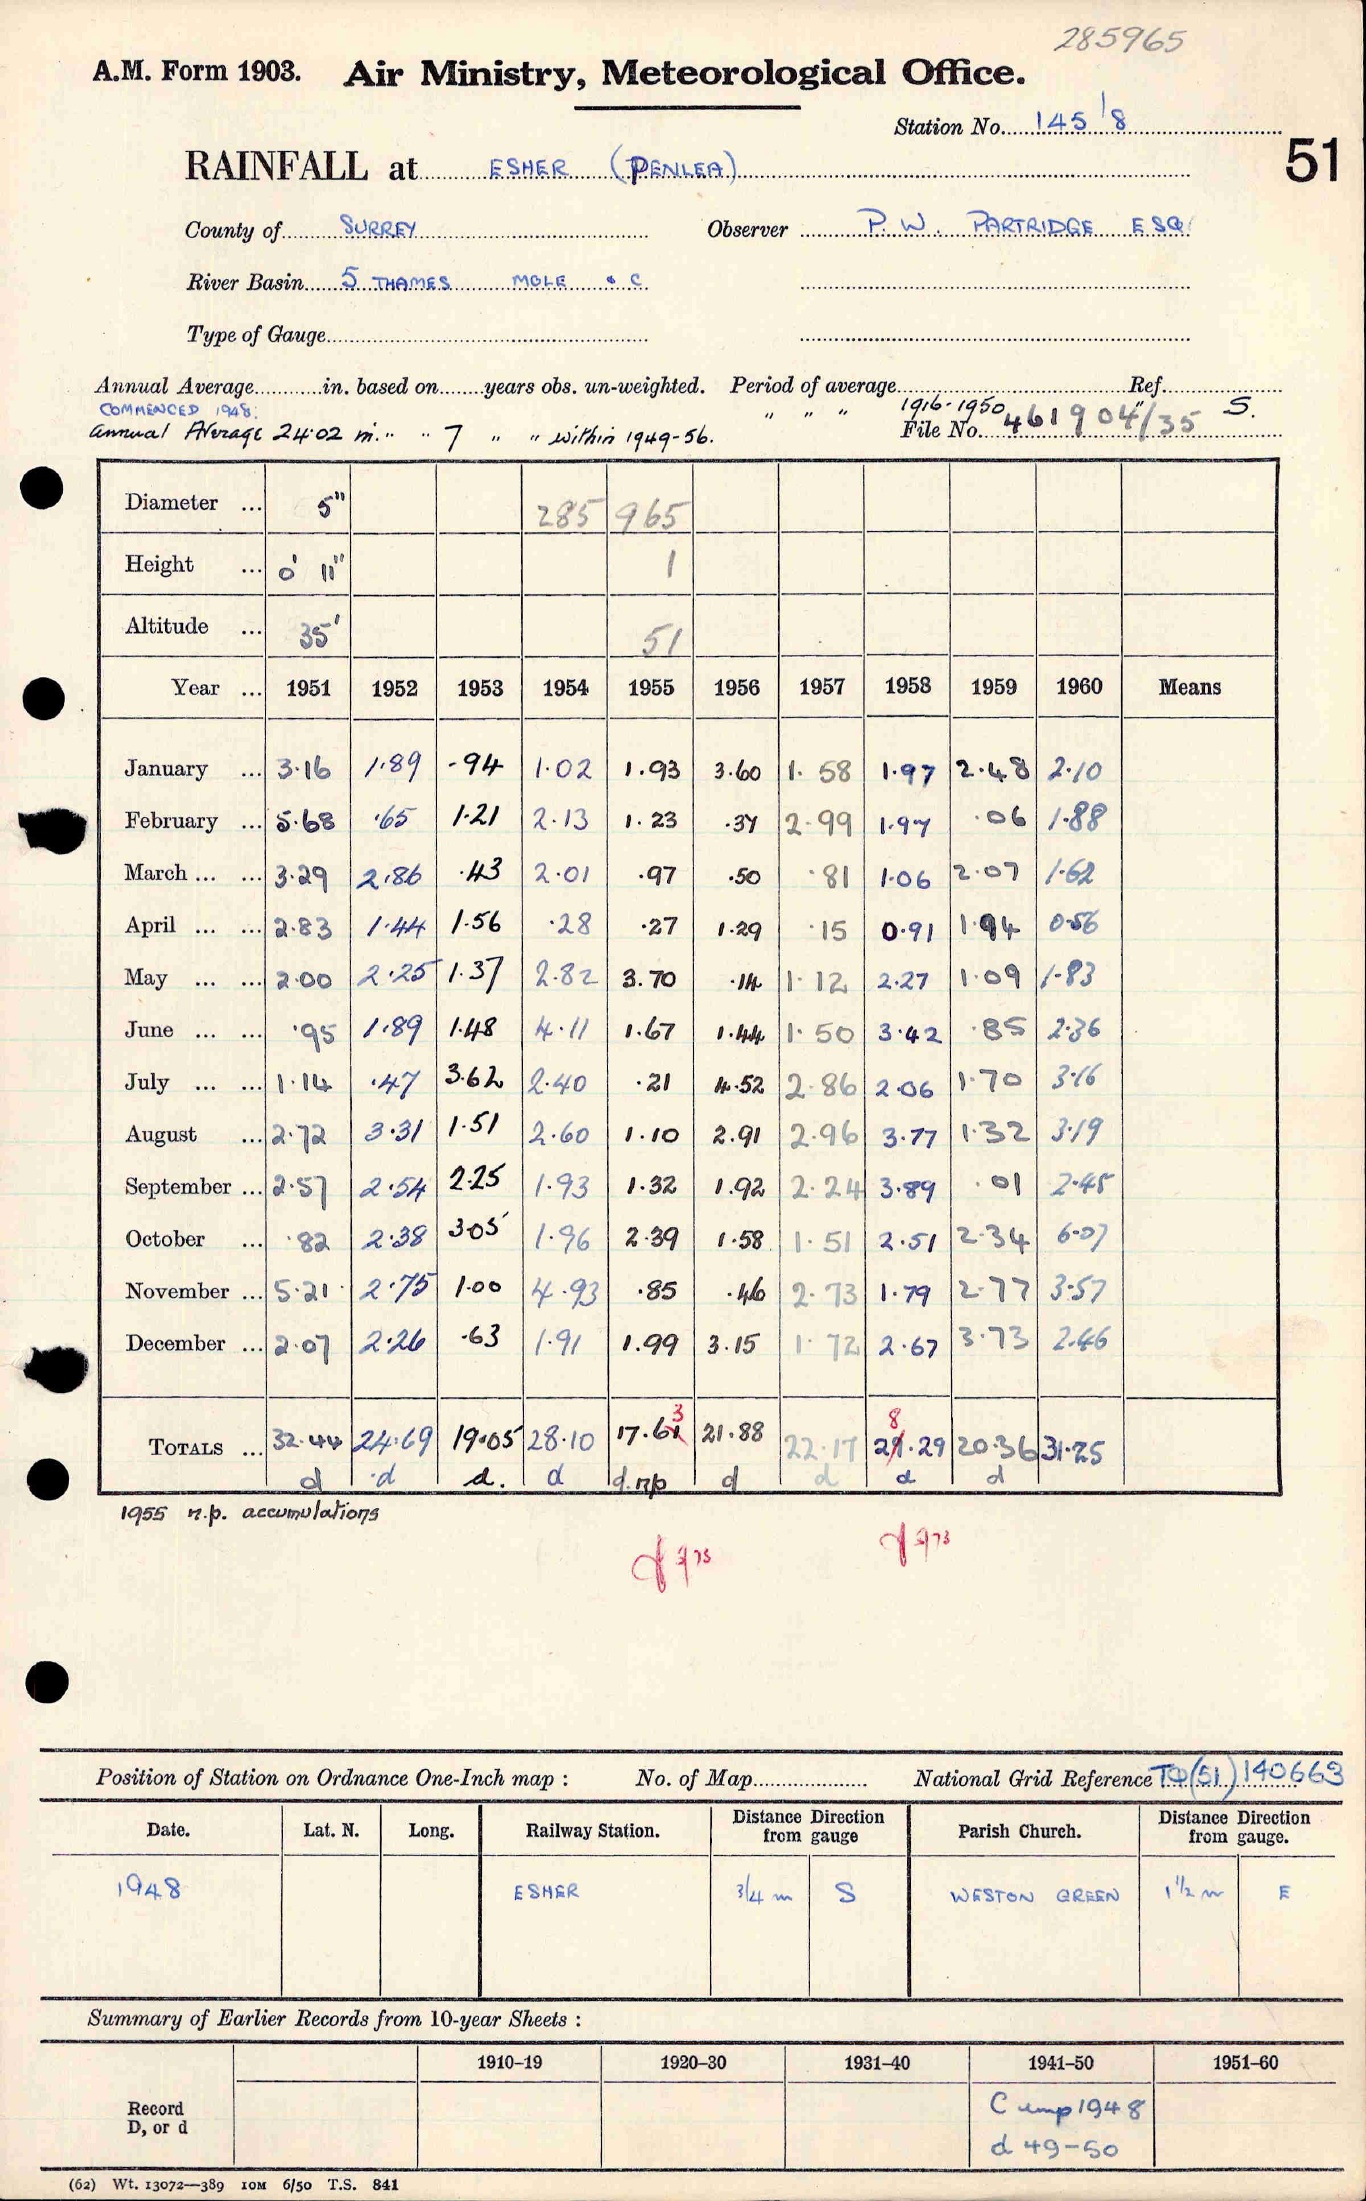 285965
A.M. Form 1903. Air Ministry, Meteorological Office.
Station No. 145/8
51
RAINFALL at ESHER (PENLEA)
County of SURREY Observer P. W. PARTRIDGE ESQ
River Basin 5 THAMES MOLE & C
Type of Gauge
Annual Average in. based on years obs. un-weighted. Period of average Ref.
COMMENCED 1948. " " " 1916-1950 " S.
Annual Average 24.02 in. " " 7 " " within 1949-56. File No. 461904/35
Diameter ... 5" 285 965
Height ... 0' 11" 1
Altitude ... 35' 51
Year ... 1951 1952 1953 1954 1955 1956 1957 1958 1959 1960 Means
January ... 3.16 1.89 .94 1.02 1.93 3.60 1.58 1.97 2.48 2.10
February ... 5.68 .65 1.21 2.13 1.23 .37 2.99 1.97 .06 1.88
March ... ... 3.29 2.86 .43 2.01 .97 .50 .81 1.06 2.07 1.62
April ... ... 2.83 1.44 1.56 .28 .27 1.29 .15 0.91 1.94 0.56
May ... ... 2.00 2.25 1.37 2.82 3.70 .14 1.12 2.27 1.09 1.83
June ... ... .95 1.89 1.48 4.11 1.67 1.44 1.50 3.42 .85 2.36
July ... ... 1.14 .47 3.62 2.40 .21 4.52 2.86 2.06 1.70 3.16
August ... 2.72 3.31 1.51 2.60 1.10 2.91 2.96 3.77 1.32 3.19
September ... 2.57 2.54 2.25 1.93 1.32 1.92 2.24 3.89 .01 2.45
October ... .82 2.38 3.05 1.96 2.39 1.58 1.51 2.51 2.34 6.07
November ... 5.21 2.75 1.00 4.93 .85 .46 2.73 1.79 2.77 3.57
December ... 2.07 2.26 .63 1.91 1.99 3.15 1.72 2.67 3.73 2.46
3 8
TOTALS ... 32.44 24.69 19.05 28.10 17.61 21.88 22.17 29.29 20.36 31.25
d d d. d d.np d d d d
1955 n.p. accumulations
Position of Station on Ordnance One-Inch map : No. of Map National Grid Reference TQ(51)140663
Date. Lat. N. Long. Railway Station. Distance Direction from gauge Parish Church. Distance Direction from gauge.
1948 ESHER 3/4 m S WESTON GREEN 1 1/2 m E
Summary of Earlier Records from 10-year Sheets :
1910–19 1920–30 1931–40 1941–50 1951–60
Record D, or d C imp 1948
d 49-50
(62) Wt. 13072—389 10M 6/50 T.S. 841